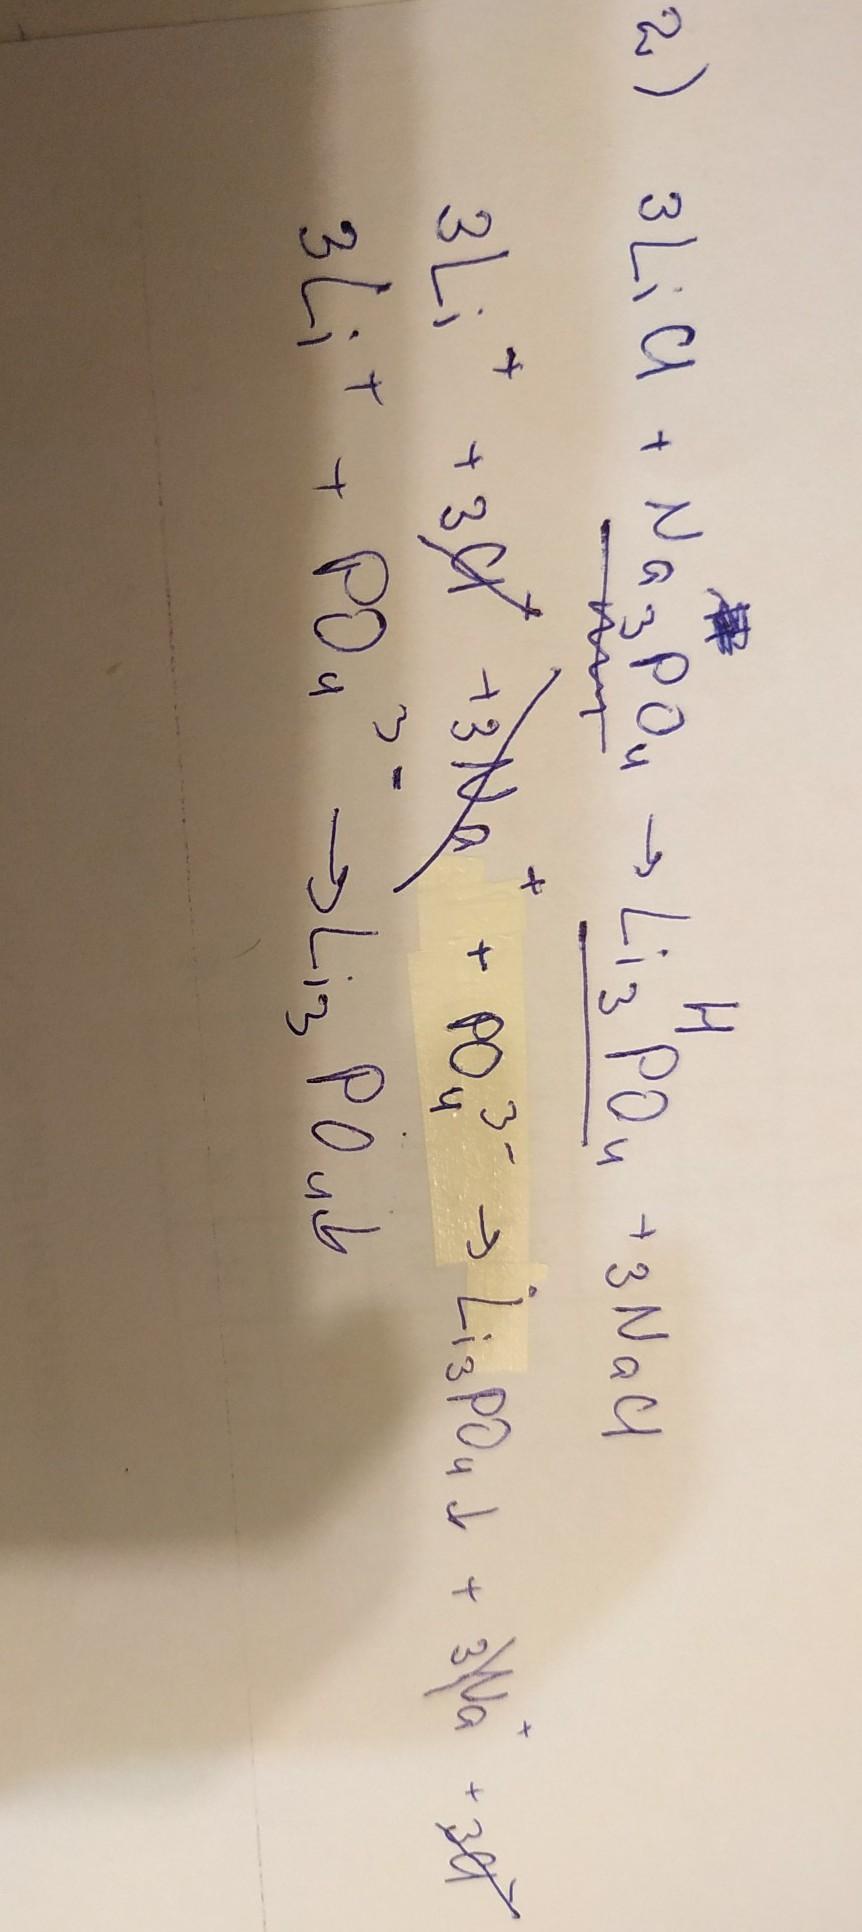 2) 3LiCl + Na₃PO₄ → Li₃PO₄ + 3NaCl
H
3Li⁺ + 3Cl⁺ + 3Na⁺ + PO₄³⁻ → Li₃PO₄↓ + 3Na⁺ + 3Cl⁻
3Li⁺ + PO₄³⁻ → Li₃PO₄↓